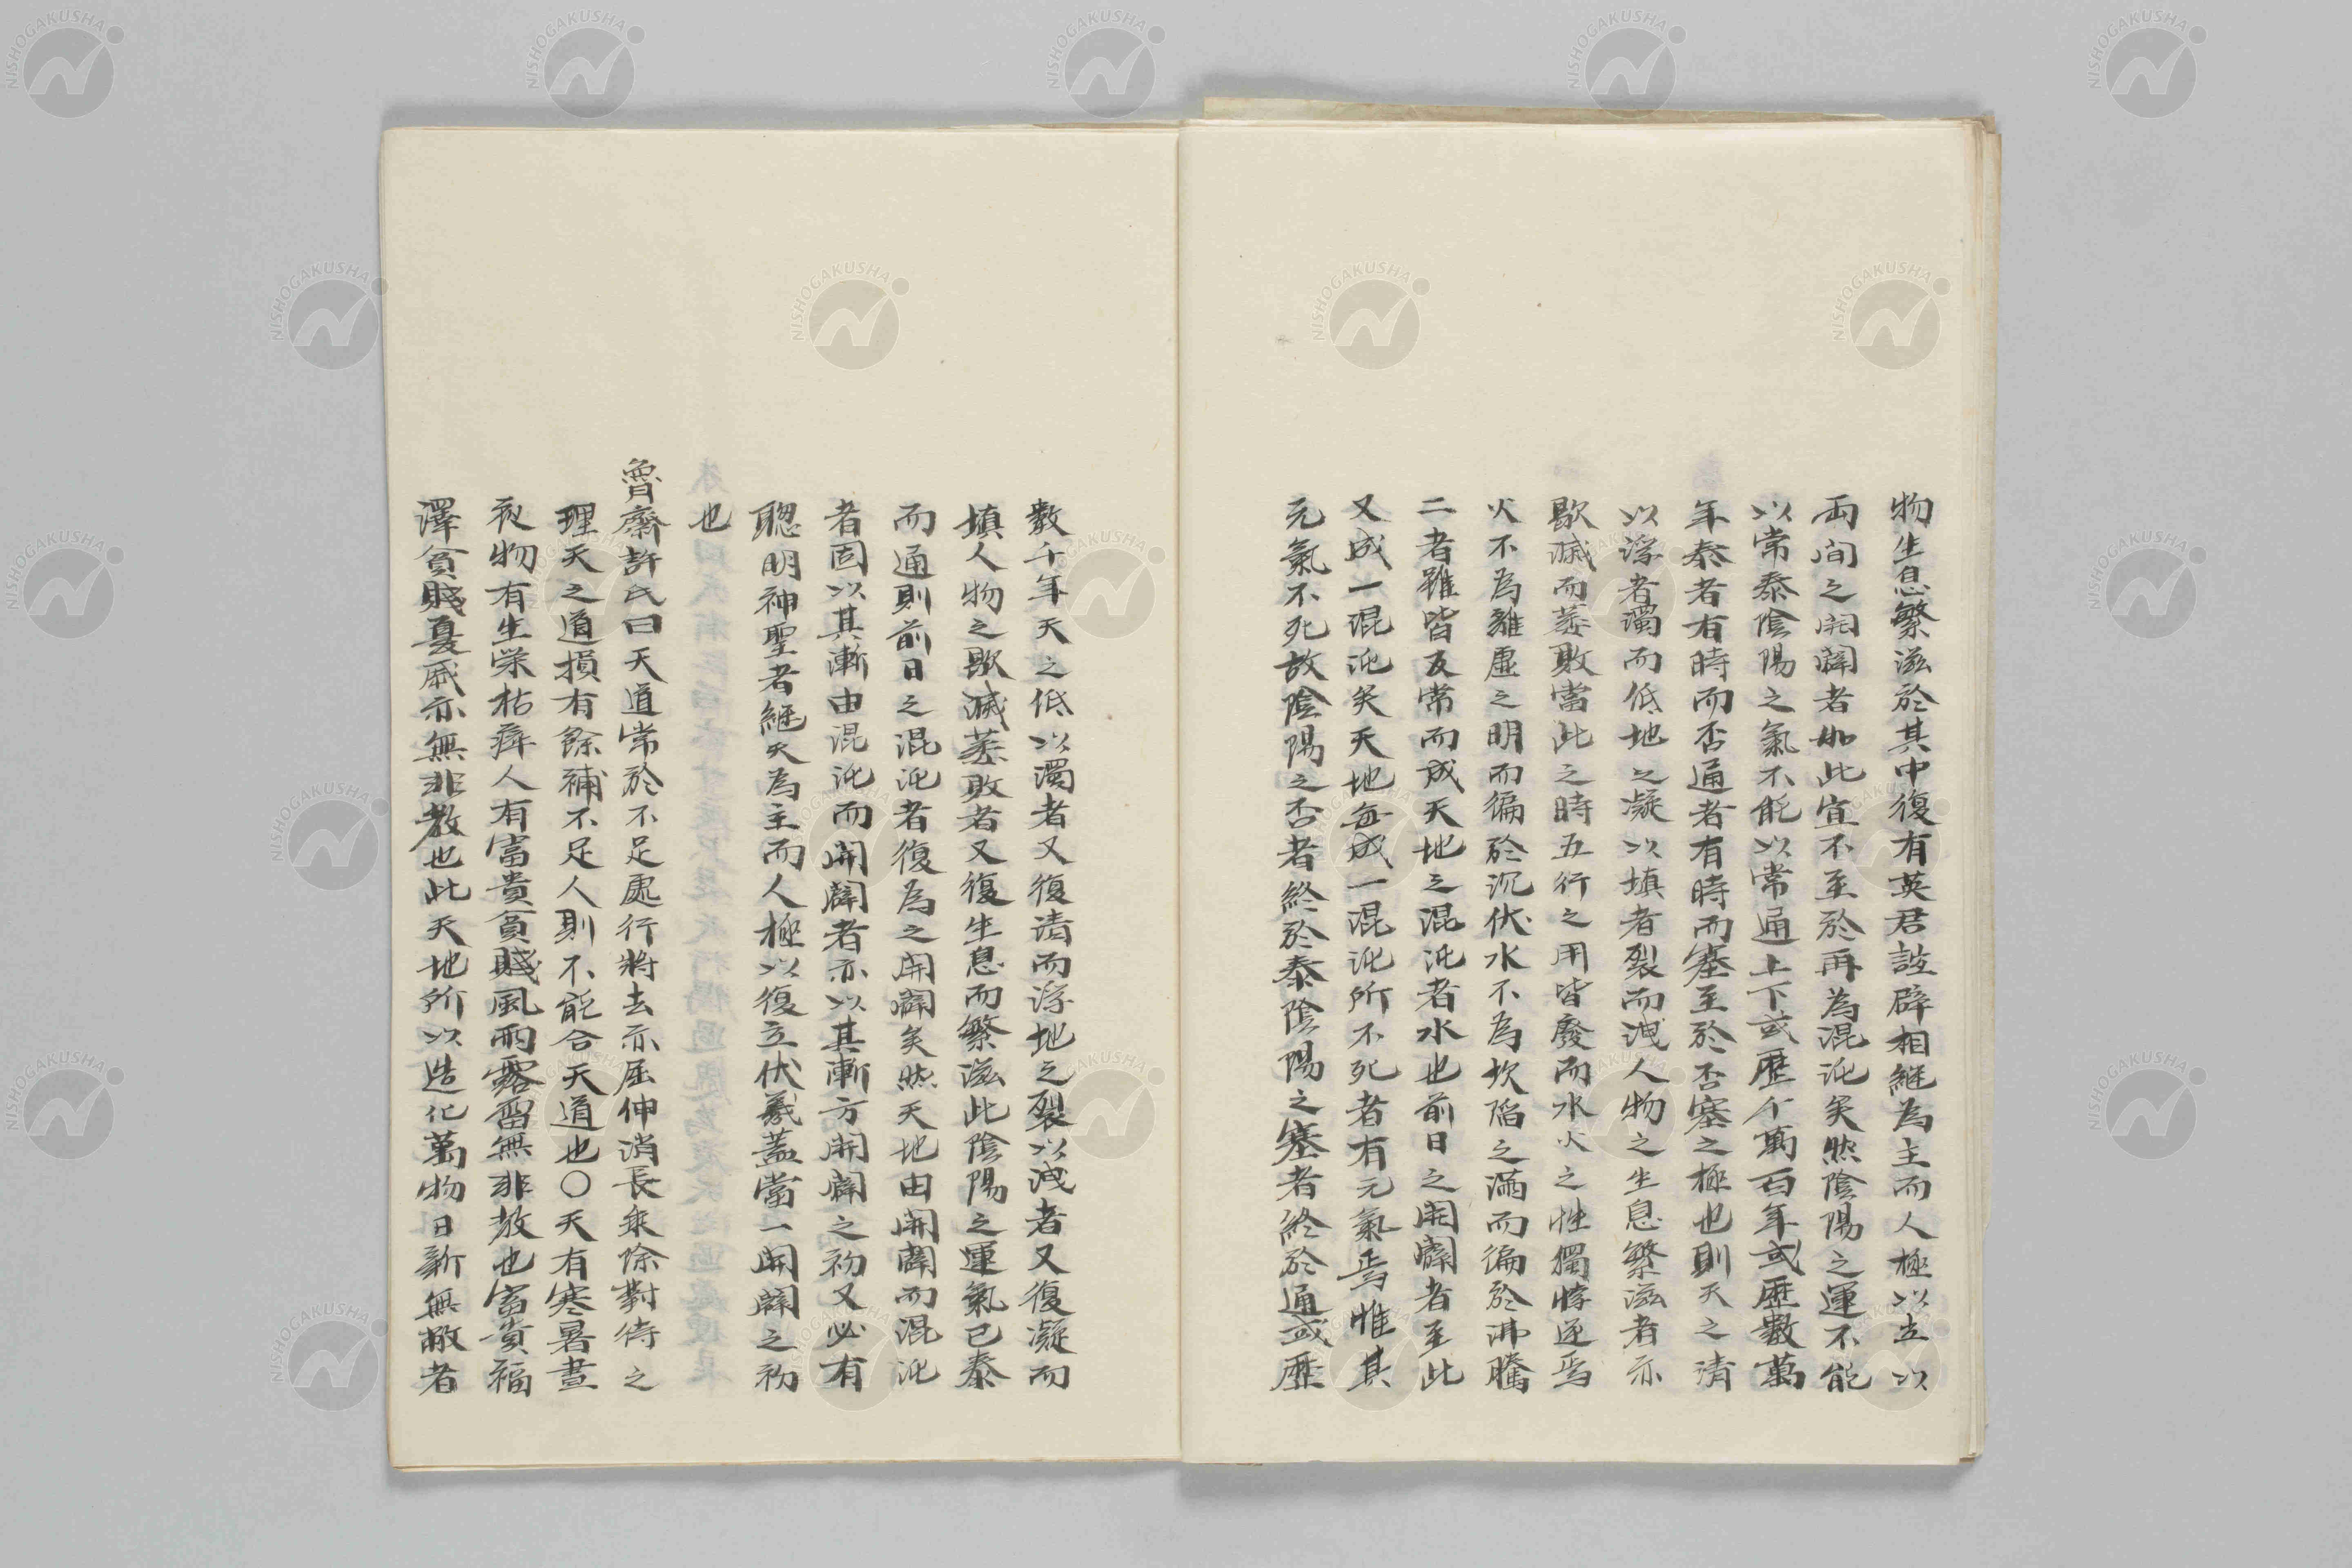 物生息繁滋於其中復有英君誼辟相継為主而人極以立以
両間之開闢者如此宜不至於再為混沌矣然陰陽之運不能
以常泰陰陽之氣不能以常通上下或歴个萬百年或歴數萬
年泰者有時而否通者有時而塞至於否塞之極也則天之清
以浮者濁而低地之凝以填者裂而洩人物之生息繁滋者亦
歇滅而萎敗當此之時五行之用皆廢而水火之性獨悖逆焉
火不為離虛之明而徧於沉伏水不為坎陷之滿而徧於沸騰
二者雖皆反常而成天地之混沌者水也前日之開闢者至此
又成一混沌矣天地每成一混沌所不死者有元氣焉惟其
元氣不死故陰陽之否者終於泰陰陽之塞者終於通或歴
數千年天之低以濁者又復清而浮地之裂以洩者又復凝而
填人物之歇滅萎敗者又復生息而繁滋此陰陽之運氣已泰
而通則前日之混沌者復為之開闢矣然天地由開闢而混沌
者固以其漸由混沌而開闢者亦以其漸方開闢之初又必有
聰明神聖者継天為主而人極以復立伏羲蓋當一開闢之初
也
魯齋許氏曰天道常於不足處行將去亦屈伸消長乘除對待之
理天之道損有餘補不足人則不能合天道也○天有寒暑晝
夜物有生栄枯瘁人有富貴貧賤風雨露雷無非教也富貴福
澤貧賤憂戚亦無非教也此天地所以造化萬物日新無敝者
NISHOGAKUSHA